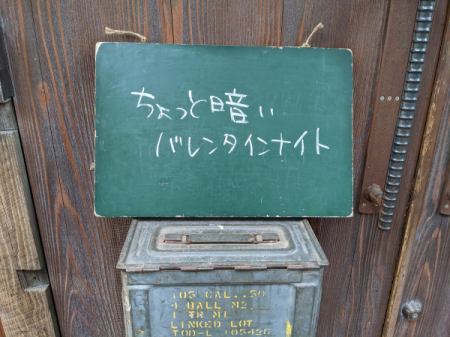 ちょっと暗い
バレンタインナイト
105 CAL. .50
4 BALL M2
1 TR M1
LINKED LOT